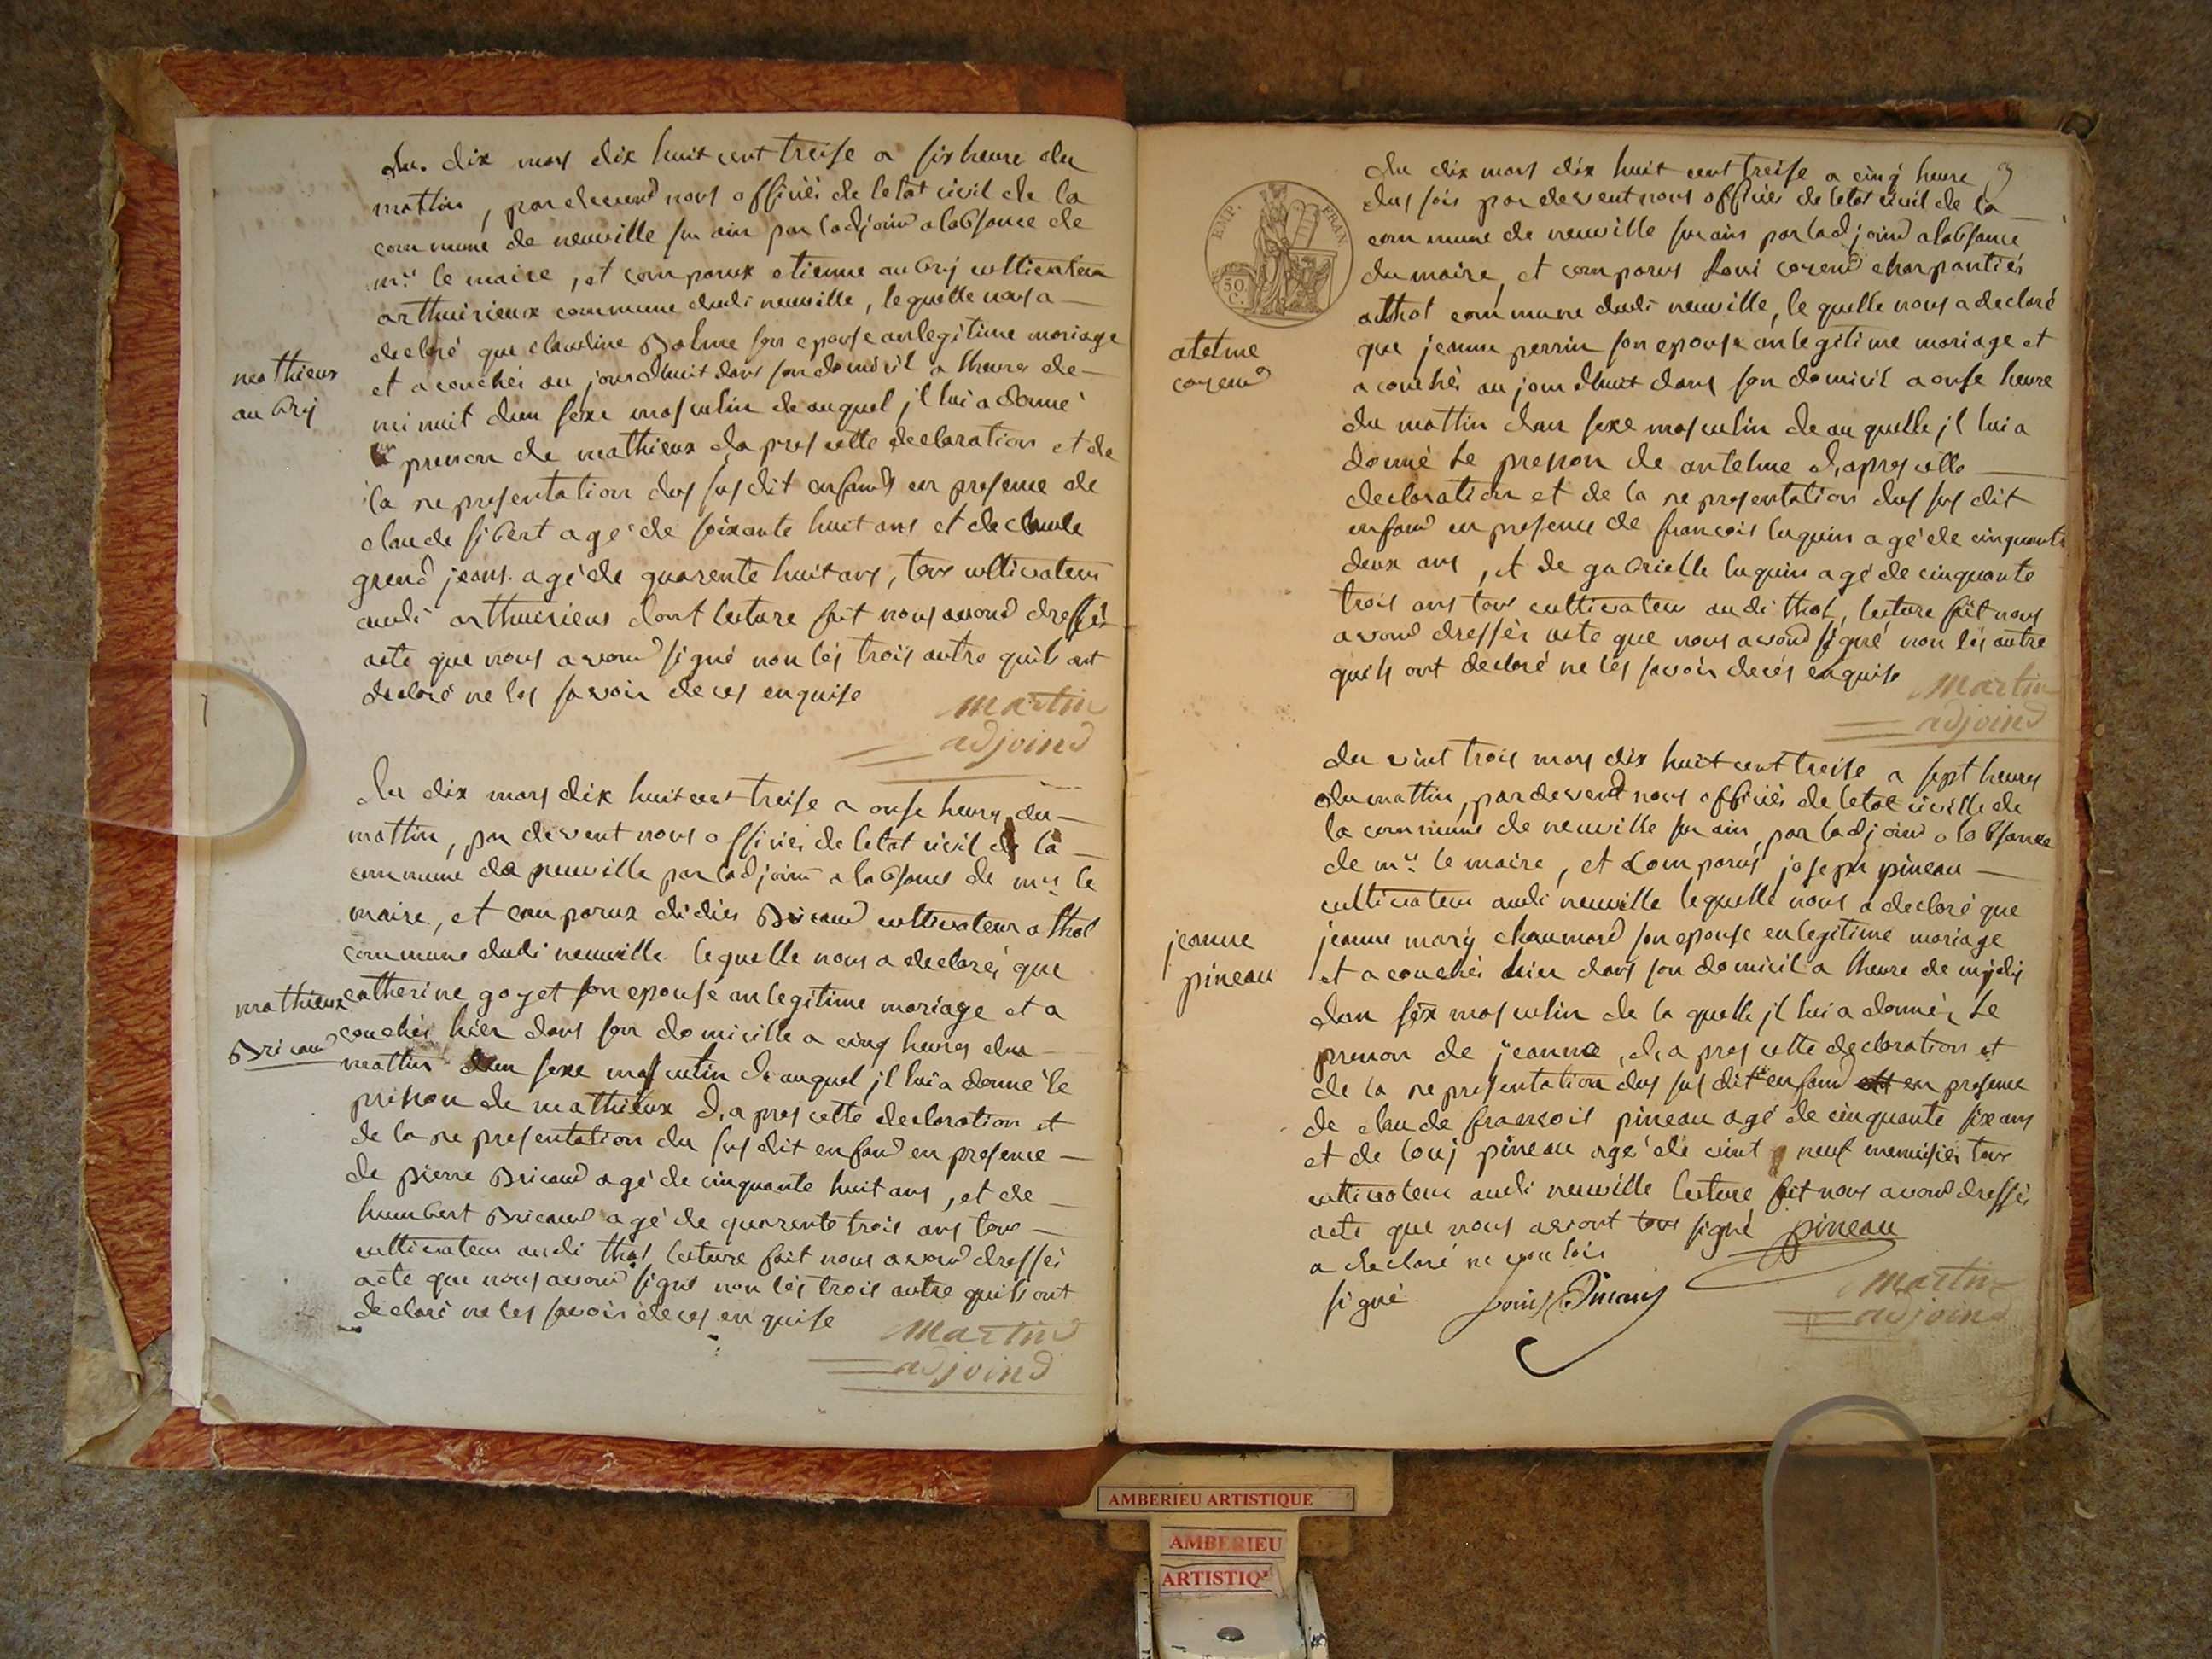 du dix mars dix huit cent treise a six heure du
mattin, par devend nous officiés de letat civil de la
commune de neuville sur ain par ladjoind a labsance de
mr. le maire, et comparux etienne aubry cultivateur
arthuirieux commune dudi neuville, lequelle nous a
declaré que claudine Balme son epouse an legitime mariage
et a couchés au jourdhuit dans son domicil a lheures de
mi nuit dun sexe masculin de auquel jl lui a donné
prenon de mathieux dapres cette declaration et de
la representation dus sus dit enfand en presence de
claude sibert agé de soixante huit ans et de claude
grend jean agé de quarente huit ans, tous cultivateur
audi arthuirieux dont lecture fait nous avond dressés
acte que nous avond signé non lés trois autre quils ont
declaré ne les savoir de ces enquise
mathieux
aubry
Martin
adjoind
Du dix mars dix huit cent treise a onse heures du
mattin, par devent nous officiés de letat civil de la
commune de neuville par ladjoind a labsance de mr. le
maire, et comparux didier Bricaud cultivateur a thol
commune dudi neuville lequelle nous a declarés que
catherine goyet son epouse an legitime mariage et a
couchés hier dans son domicille a cinq heures du
mattin dun sexe masculin de auquel jl lui a donné le
prenon de mathieux d,a pres cette declaration et
de la representation du sus dit enfand en presence
de pierre Bricaud agé de cinquante huit ans, et de
humbert Bricaud agé de quarente trois ans tous
cultivateur audi thol lecture fait nous avond dressés
acte que nous avond signé non lés trois autre quils ont
declaré ne les savoir de ces enquise
mathieux
Bricaud
Martin
adjoind
9
EMP. FRAN
50
C.
du dix mars dix huit cent treise a cinq heure
dus soir par devent nous officiés de letat civil de la
commune de neuville sur ain par ladjoind a labsance
du maire, et comparus Loui corend charpantiés
athol commune dudi neuville, le quelle nous a declaré
que jeanne perrin son epouse an legitime mariage et
a couchés au jourdhuit dans son domicil a onse heure
du mattin dun sexe masculin de au quelle jl lui a
donné Le prenon de antelme d,apres cette
declaration et de la representation dus sus dit
enfand en presence de francois luquin agé de cinquante
deux ans, et de gabrielle luquin agé de cinquante
trois ans tous cultivateur audi thol, lecture fait nous
avond dressés acte que nous avond signé non lés autre
quils ont declaré ne les savoir de cés enquise
atelme
corend
Martin
adjoind
du vint trois mars dix huit cent treise a sept heures
du mattin, par devend nous officiés de letat civille de
la commune de neuville sur ain, par ladjoind a labsance
de mr. le maire, et comparus joseph pineau
cultivateur audi neuville lequelle nous a declaré que
jeanne mary chaumard son epouse en legitime mariage
et a couchés hier dans son domicil a lheure de mijdis
dun séx masculin de la quelle jl lui a donnés Le
prenon de jeanne, d,a pres cette declaration et
de la representation dus sus dit enfand en presence
de claude francois pineau agé de cinquante six ans
et de louj pineau agé de vint neuf menuisiés tous
cultivateur audi neuville lecture fait nous avond dressés
acte que nous avont tous signé pineau
a declaré ne
signé
jeanne
pineau
Louis Pineau
Martin
adjoind
AMBERIEU ARTISTIQUE
AMBERIEU
ARTISTIQ